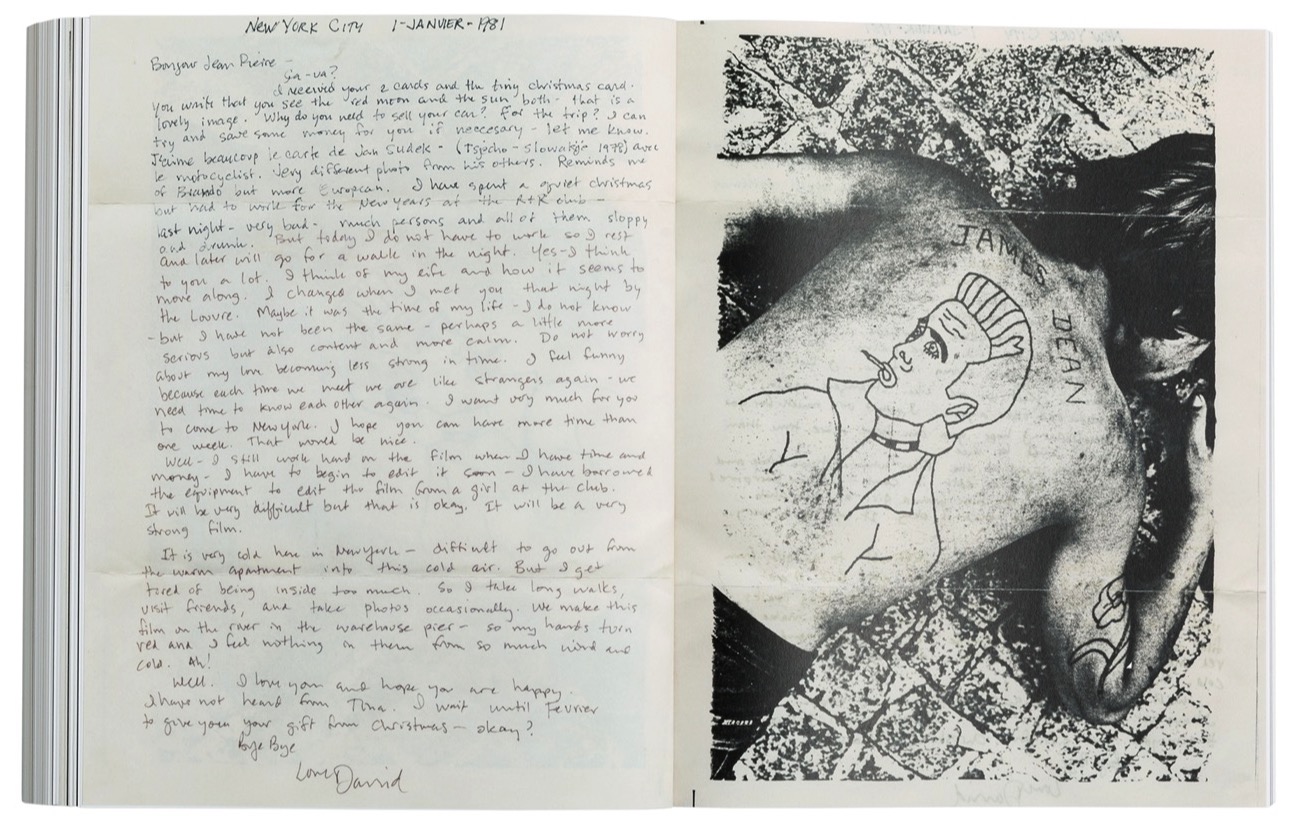 NEW YORK CITY 1-JANVIER-1981
Bonjour Jean Pierre –
Ça-va?
I received your 2 cards and the tiny christmas card.
You write that you see the red moon and the sun both - that is a
lovely image. Why do you need to sell your car? For the trip? I can
try and save some money for you if neccesary - let me know.
J'aime beaucoup le carte de Jan Sudek - (Tsjecho-Slowakije 1978) avec
le motocyclist. Very different photo from his others. Reminds me
of Brando but more European. I have spent a quiet christmas
but had to work for the New Years at the R+R club -
last night - very bad - much persons and all of them sloppy
and drunk. But today I do not have to work so I rest
and later will go for a walk in the night. Yes - I think
to you a lot. I think of my life and how it seems to
move along. I changed when I met you that night by
the Louvre. Maybe it was the time of my life - I do not know
- but I have not been the same - perhaps a little more
serious but also content and more calm. Do not worry
about my love becoming less strong in time. I feel funny
because each time we meet we are like strangers again - we
need time to know each other again. I want very much for you
to come to New York. I hope you can have more time than
one week. That would be nice.
Well - I still work hard on the film when I have time and
money - I have to begin to edit it soon - I have borrowed
the equipment to edit the film from a girl at the club.
It will be very difficult but that is okay. It will be a very
strong film.
It is very cold here in New York - difficult to go out from
the warm apartment into this cold air. But I get
tired of being inside too much. So I take long walks,
visit friends, and take photos occasionally. We make this
film on the river in the warehouse pier - so my hands turn
red and I feel nothing in them from so much wind and
cold. Ah!
Well. I love you and hope you are happy.
I have not heard from Tina. I wait until Fevrier
to give you your gift from Christmas - okay?
Bye Bye
Love David
JAMES
DEAN